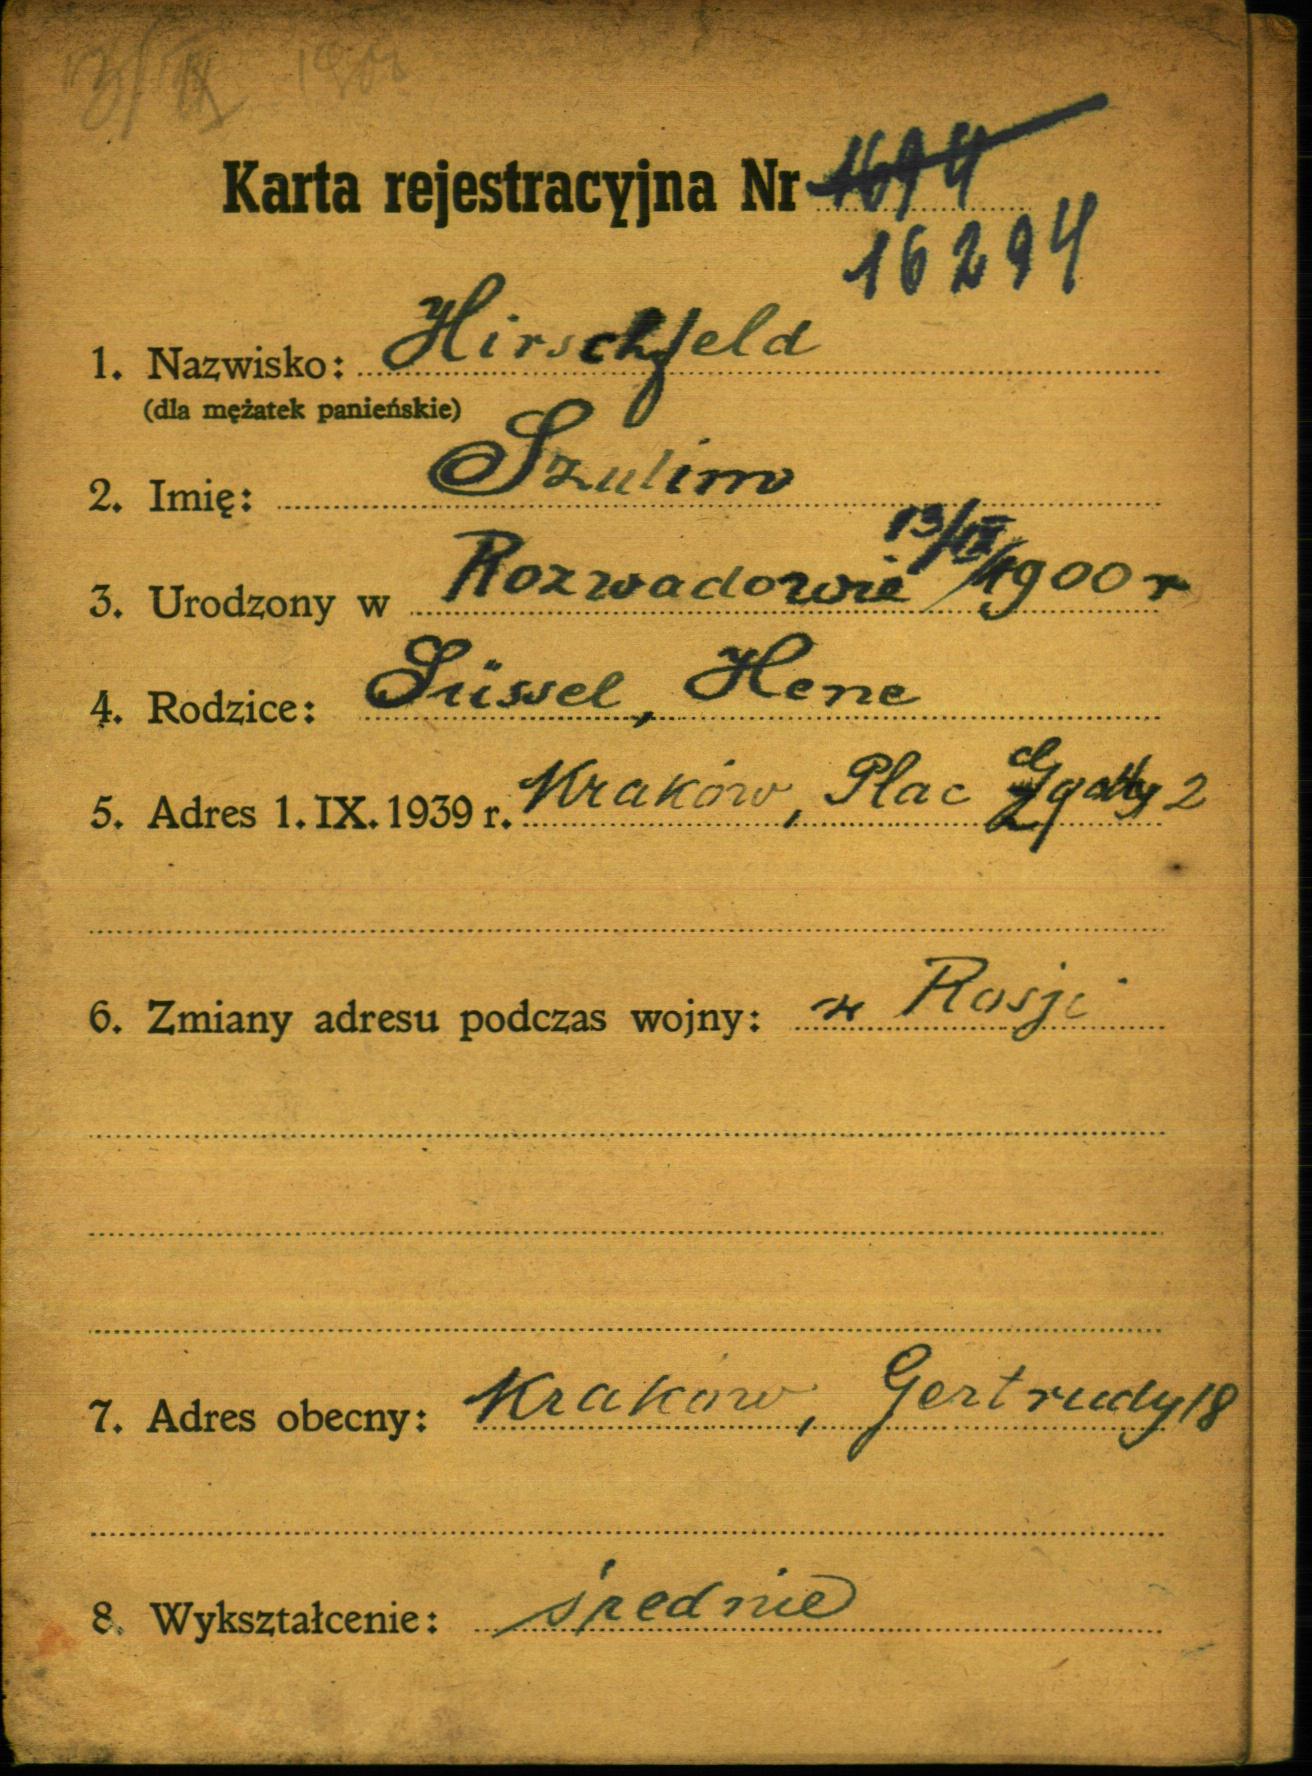 13/IX 190
Karta rejestracyjna Nr 1694
16294
1. Nazwisko: Hirschfeld
(dla mężatek panieńskie)
2. Imię: Szulim
3. Urodzony w Rozwadowie 13/IX 1900 r
4. Rodzice: Süssel, Hene
5. Adres 1. IX. 1939 r. Kraków, Plac Zgody 2
6. Zmiany adresu podczas wojny: w Rosji
7. Adres obecny: Kraków, Gertrudy 18
8. Wykształcenie: średnie